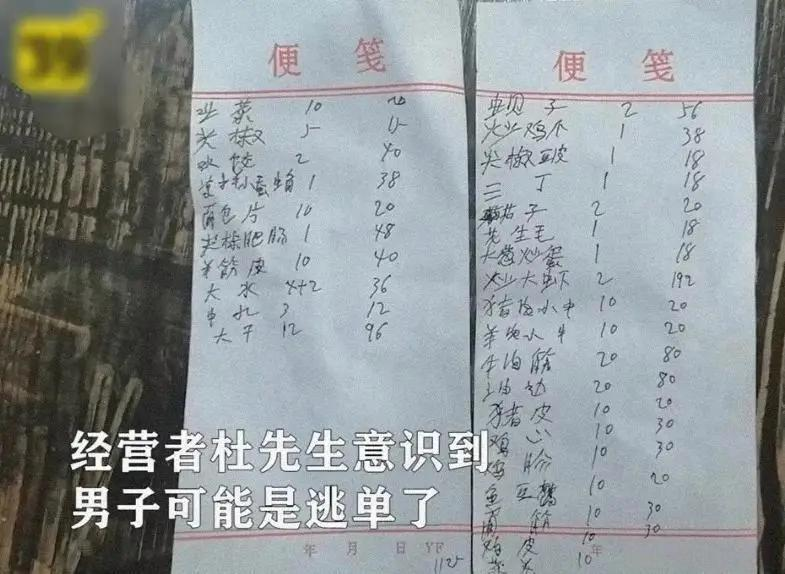 便笺
韭菜 10 20
尖椒 5 15
水饺 2 40
1 38
面包片 10 20
尖椒肥肠 1 48
羊筋皮 10 40
大水 4+2 36
3 12
大干 12 96
年 月 日 YF
1125
便笺
2 56
火少鸡爪 1 38
尖椒豆皮 1 18
三丁 1 18
茄子 2 20
花生毛 1 18
大葱炒蛋 1 18
炒大虾 2 192
猪肉小串 10 20
羊肉小串 10 20
牛油筋 20 80
油边 20 80
猪皮 10 20
鸡心 10 30
10 30
鱼豆腐 10 20
面筋 10 30
鸡皮 10 30
10
年
经营者杜先生意识到
男子可能是逃单了